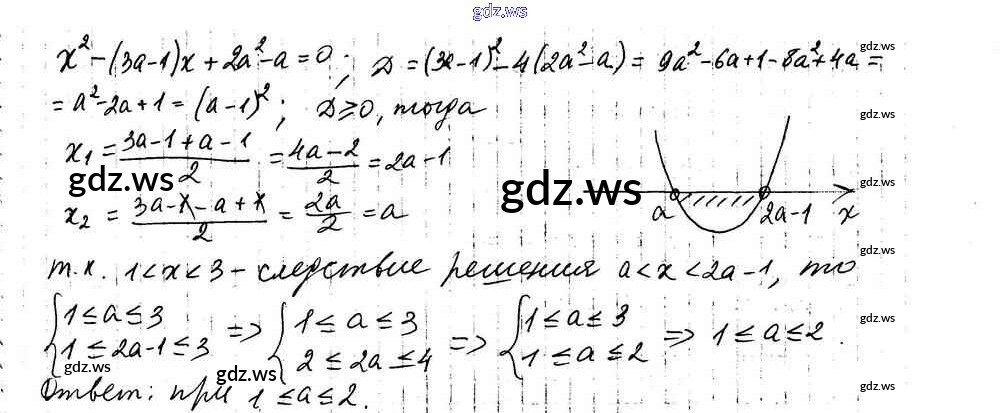 gdz.ws
x² - (3a-1)x + 2a² - a = 0; D = (3a-1)² - 4(2a² - a) = 9a² - 6a + 1 - 8a² + 4a =
gdz.ws
= a² - 2a + 1 = (a-1)²; D ≥ 0, тогда
gdz.ws
x₁ = (3a-1+a-1)/2 = (4a-2)/2 = 2a-1
gdz.ws
gdz.ws
gdz.ws
x₂ = (3a-1-a+1)/2 = 2a/2 = a
a 2a-1 x
gdz.ws
т.к. 1<x<3 - следствие решения a<x<2a-1, то
gdz.ws
{1≤a≤3 => {1≤a≤3 => {1≤a≤3 => 1≤a≤2.
gdz.ws
{1≤2a-1≤3 {2≤2a≤4 {1≤a≤2
gdz.ws
gdz.ws
gdz.ws
Ответ: при 1≤a≤2.
gdz.ws